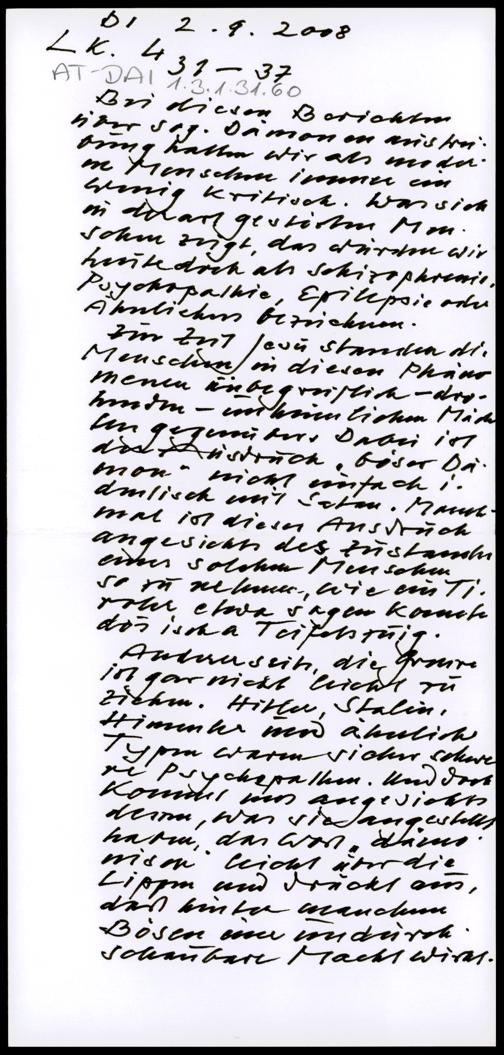 DI 2. 9. 2008
LK. 4
31 – 37
AT-DAI 1.3.1.31.60
Bei diesen Berichten
über sog. Dämonenaustrei-
bung halten wir als moder-
ne Menschen immer ein
wenig kritisch. Was sich
in derart gestörten Men-
schen zeigt, das würden wir
heute doch als Schizophrenie,
Psychopathie, Epilepsie oder
Ähnliches bezeichnen.
Zur Zeit Jesu standen die
Menschen in diesen Phäno-
menen unbegreiflich – dro-
henden – unheimlichen Mäch-
ten gegenüber. Dabei ist
der Ausdruck „böser Dä-
mon" nicht einfach i-
dentisch mit Satan. Manch-
mal ist dieser Ausdruck
angesichts des Zustandes
eines solchen Menschen
so zu nehmen, wie ein Ti-
roler etwa sagen könnte
dös isch a Teifelszuig.
Anderseits, die Grenze
ist gar nicht leicht zu
ziehen. Hitler, Stalin,
Himmler und ähnliche
Typen waren sicher schwe-
re Psychopathen. Und doch
kommt uns angesichts
dessen, was sie angestellt
haben, das Wort „dämo-
nisch" leicht über die
Lippen und drückt aus,
daß hinter manchem
Bösen eine undurch-
schaubare Macht wirkt.